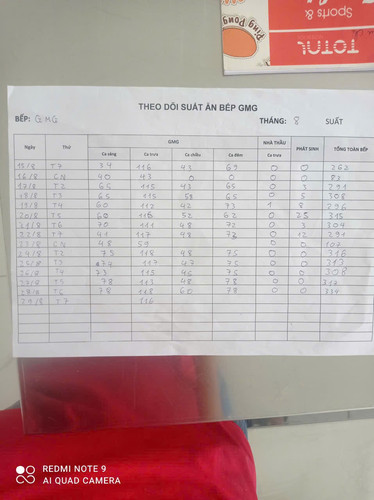 Ping Pong
Sports &
TOTAL
THEO DÕI SUẤT ĂN BẾP GMG
BẾP: GMG THÁNG: 8 SUẤT
Ngày Thứ GMG NHÀ THẦU PHÁT SINH TỔNG TOÀN BẾP
Ca sáng Ca trưa Ca chiều Ca đêm Ca trưa
15/8 T7 34 116 43 69 0 0 262
16/8 CN 40 43 0 0 0 0 83
17/8 T2 65 115 43 65 0 3 291
18/8 T3 65 115 58 65 0 5 308
19/8 T4 60 112 42 73 1 8 296
20/8 T5 60 116 52 62 0 25 315
21/8 T6 70 111 48 72 0 3 304
22/8 T7 41 117 48 73 0 12 291
23/8 CN 48 59 0 0 107
24/8 T2 75 118 48 75 0 0 316
25/8 T3 74 117 47 75 0 0 313
26/8 T4 73 115 46 75 0 0 308
27/8 T5 78 113 48 78 0 0 317
28/8 T6 78 118 60 78 0 0 334
29/8 T7 116
REDMI NOTE 9
AI QUAD CAMERA